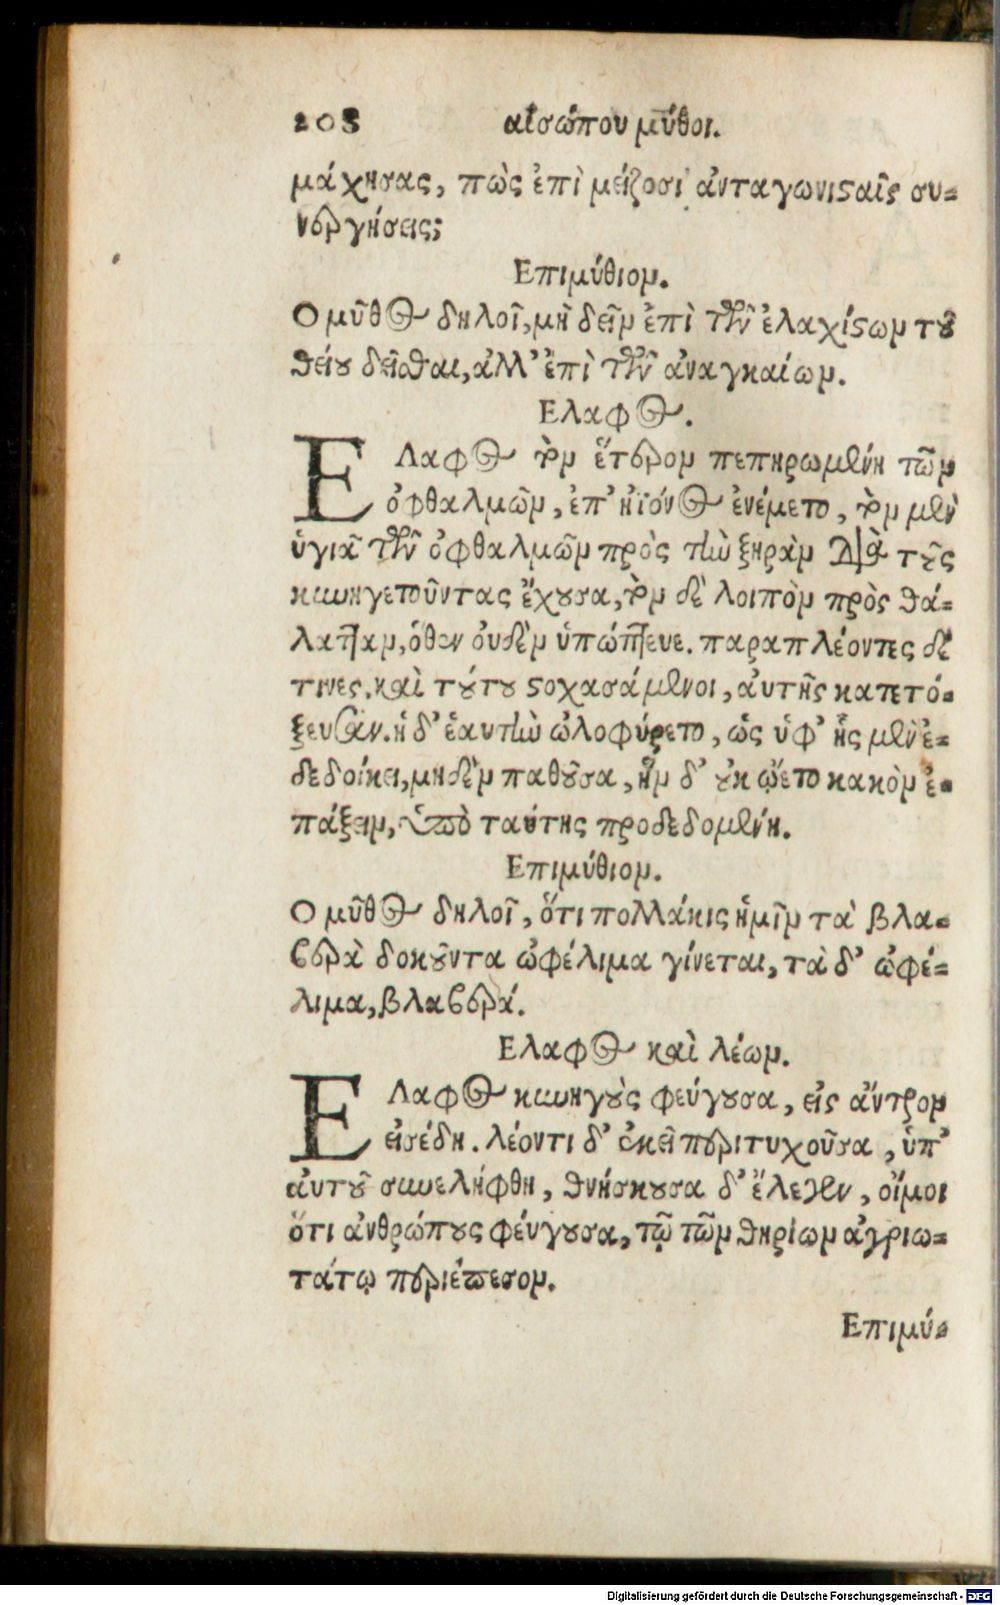 208 αἰσώπου μῦθοι.
μάχησας, πῶς ἐπὶ μείζοσι ἀνταγωνισταῖς συ-
νεργήσεις;
Επιμύθιον.
Ο μῦθος δηλοῖ, μὴ δεῖν ἐπὶ τῶν ἐλαχίστων τοῦ
θείου δεῖσθαι, ἀλλ' ἐπὶ τῶν ἀναγκαίων.
Ελαφος.
ΕΛαφος τὸν ἕτερον πεπηρωμένη τῶν
ὀφθαλμῶν, ἐπ' ἠϊόνος ἐνέμετο, τὸν μὲν
ὑγιᾶ τῶν ὀφθαλμῶν πρὸς τὴν ξηρὰν διὰ τοὺς
κυνηγετοῦντας ἔχουσα, τὸν δὲ λοιπὸν πρὸς θά-
λατταν, ὅθεν οὐδὲν ὑπώπτευε. παραπλέοντες δέ
τινες, καὶ τούτου στοχασάμενοι, αὐτῆς κατετό-
ξευσαν. ἡ δ' ἑαυτὴν ὠλοφύρετο, ὡς ὑφ' ἧς μὲν ἐ-
δεδοίκει, μηδὲν παθοῦσα, ἣν δ' οὐκ ᾤετο κακὸν ἐ-
πάξειν, ὑπὸ ταύτης προδεδομένη.
Επιμύθιον.
Ο μῦθος δηλοῖ, ὅτι πολλάκις ἡμῖν τὰ βλα-
βερὰ δοκοῦντα ὠφέλιμα γίνεται, τὰ δ' ὠφέ-
λιμα, βλαβερά.
Ελαφος καὶ λέων.
ΕΛαφος κυνηγοὺς φεύγουσα, εἰς ἄντρον
εἰσέδη. λέοντι δ' ἐκεῖ περιτυχοῦσα, ὑπ'
αὐτοῦ συνελήφθη, θνήσκουσα δ' ἔλεγεν, οἴμοι
ὅτι ἀνθρώπους φεύγουσα, τῷ τῶν θηρίων ἀγριω-
τάτῳ περιέπεσον.
Επιμύ-
Digitalisierung gefördert durch die Deutsche Forschungsgemeinschaft - DFG